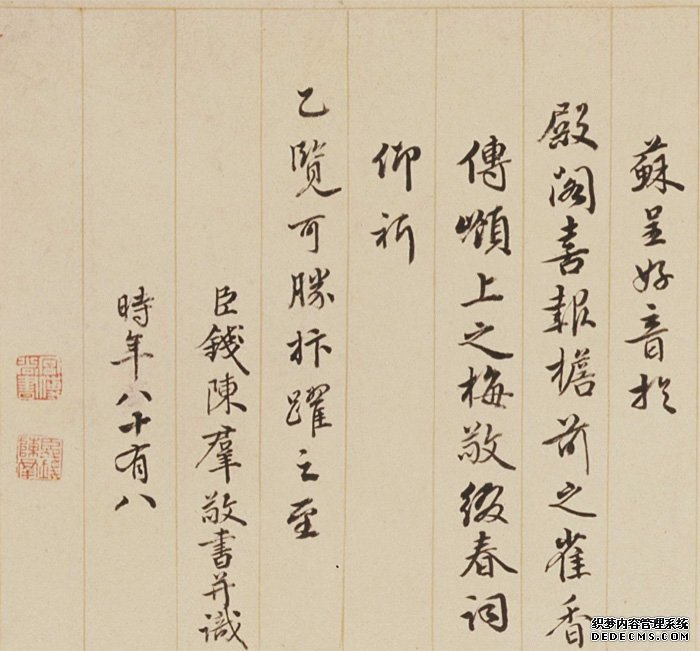 蘇呈好音於
殿閣喜報檐前之雀香
傳嶺上之梅敬綴春詞
仰祈
乙覽可勝抃躍之至
臣錢陳羣敬書并識
時年八十有八
织梦内容管理系统
DEDECMS.COM